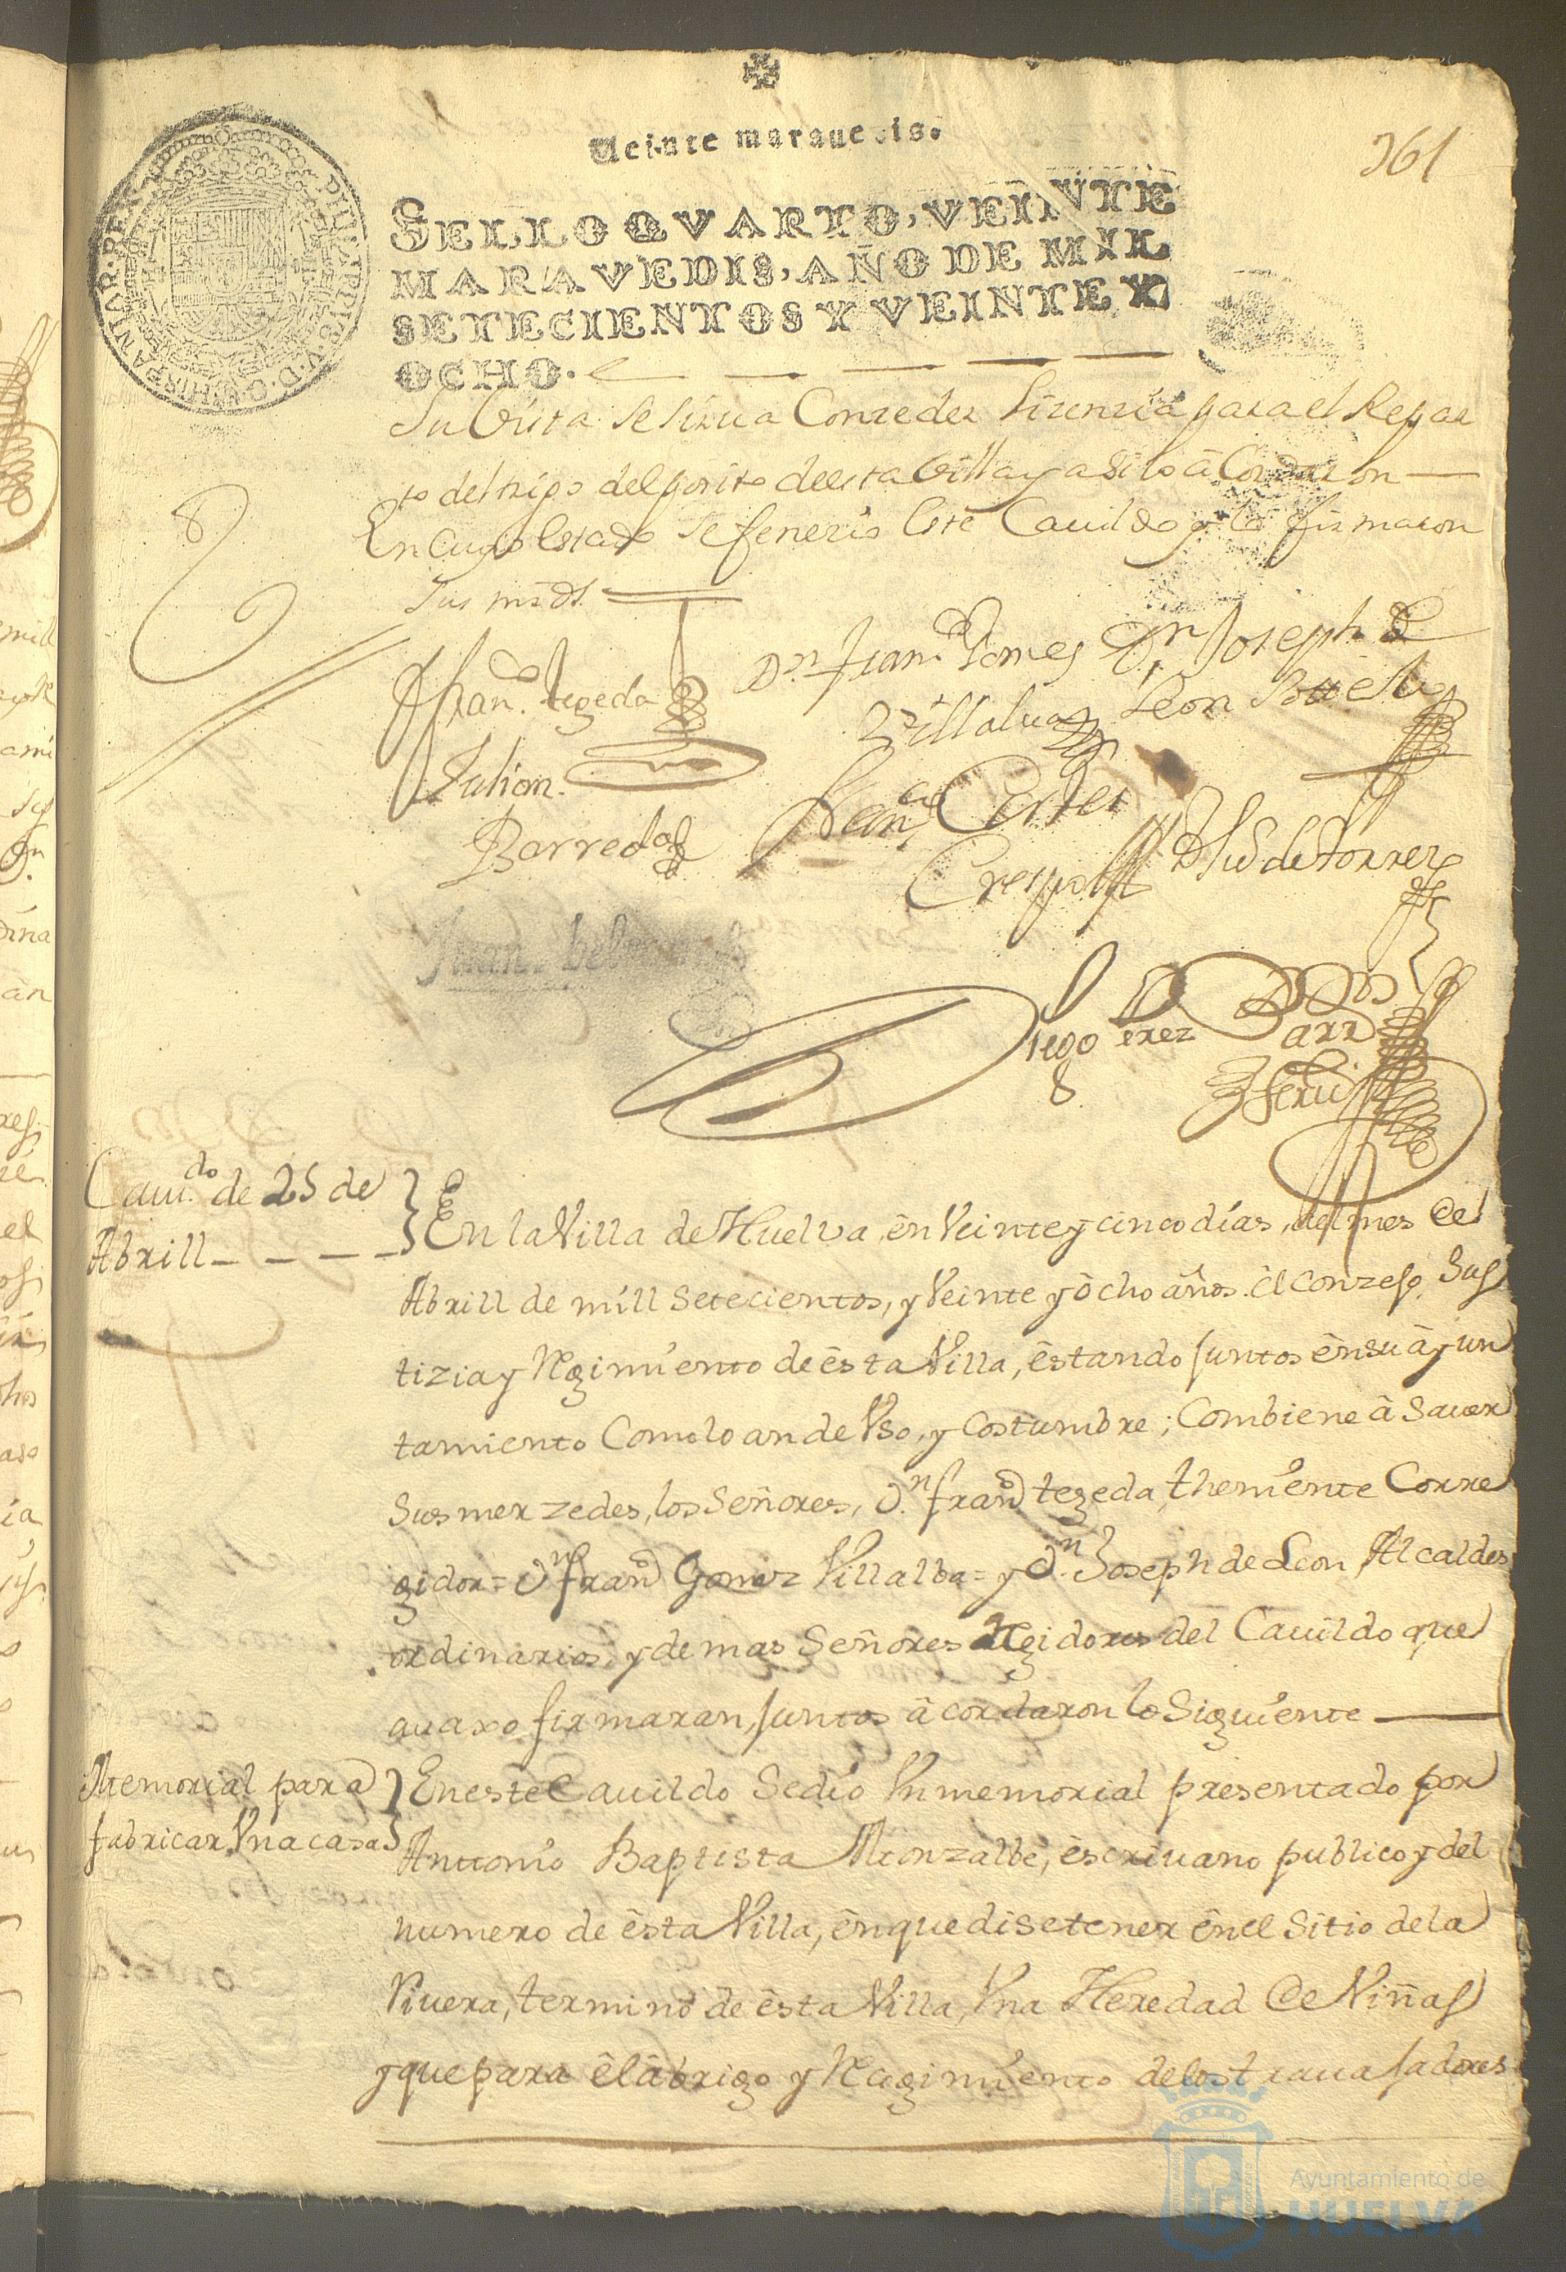 Veinte maravedis.
361
SELLO QVARTO, VEINTE
MARAVEDIS, AÑO DE MIL
SETECIENTOS Y VEINTE Y
OCHO.
Su Vista se sirva Conzeder lizenzia para el Repar
to del trigo del posito de esta Villa y asi lo acordaron
En Cuyo estado se fenezio este Cauildo y lo firmaron
sus mrds.
Fran.co tegeda
Dn. Fran.co Gomes
Dn. Joseph de
Villalua
Leon
Julian
Barreda
Fran.co Cortes
Crespo
de torres
Juan
Diego Perez
Caui.do de 25 de
Abrill
En la Villa de Huelva, en Veinte y cinco dias, del mes de
Abrill de mill setecientos, y Veinte y ôcho años. êl Conzejo, Jus
tizia y Regimiento de êsta Villa, êstando juntos ên su âyun
tamiento Como lo an de Vso, y Costumbre; Combiene â Sauer
Sus merzedes, los Señores, Dn. franco tegeda, theniente Corre
gidor = Dn. franco Gomez Villalba = y Dn. Joseph de Leon Alcaldes
ordinarios, y demas Señores Regidores del Cauildo que
auaxo firmaran, juntos âcordaron lo Siguiente
Memorial para
fabricar Vna casa
En este Cauildo Se dio Vn memorial presentado por
Antonio Baptista Monzalbe, êscriuano publico y del
numero de êsta Villa, ên que dise tener ên el Sitio de la
Riuera, termino de êsta Villa, Vna Heredad de Viñas
y que para êl âbrigo y Recogimiento de los trauajadores
Ayuntamiento de
HUELVA